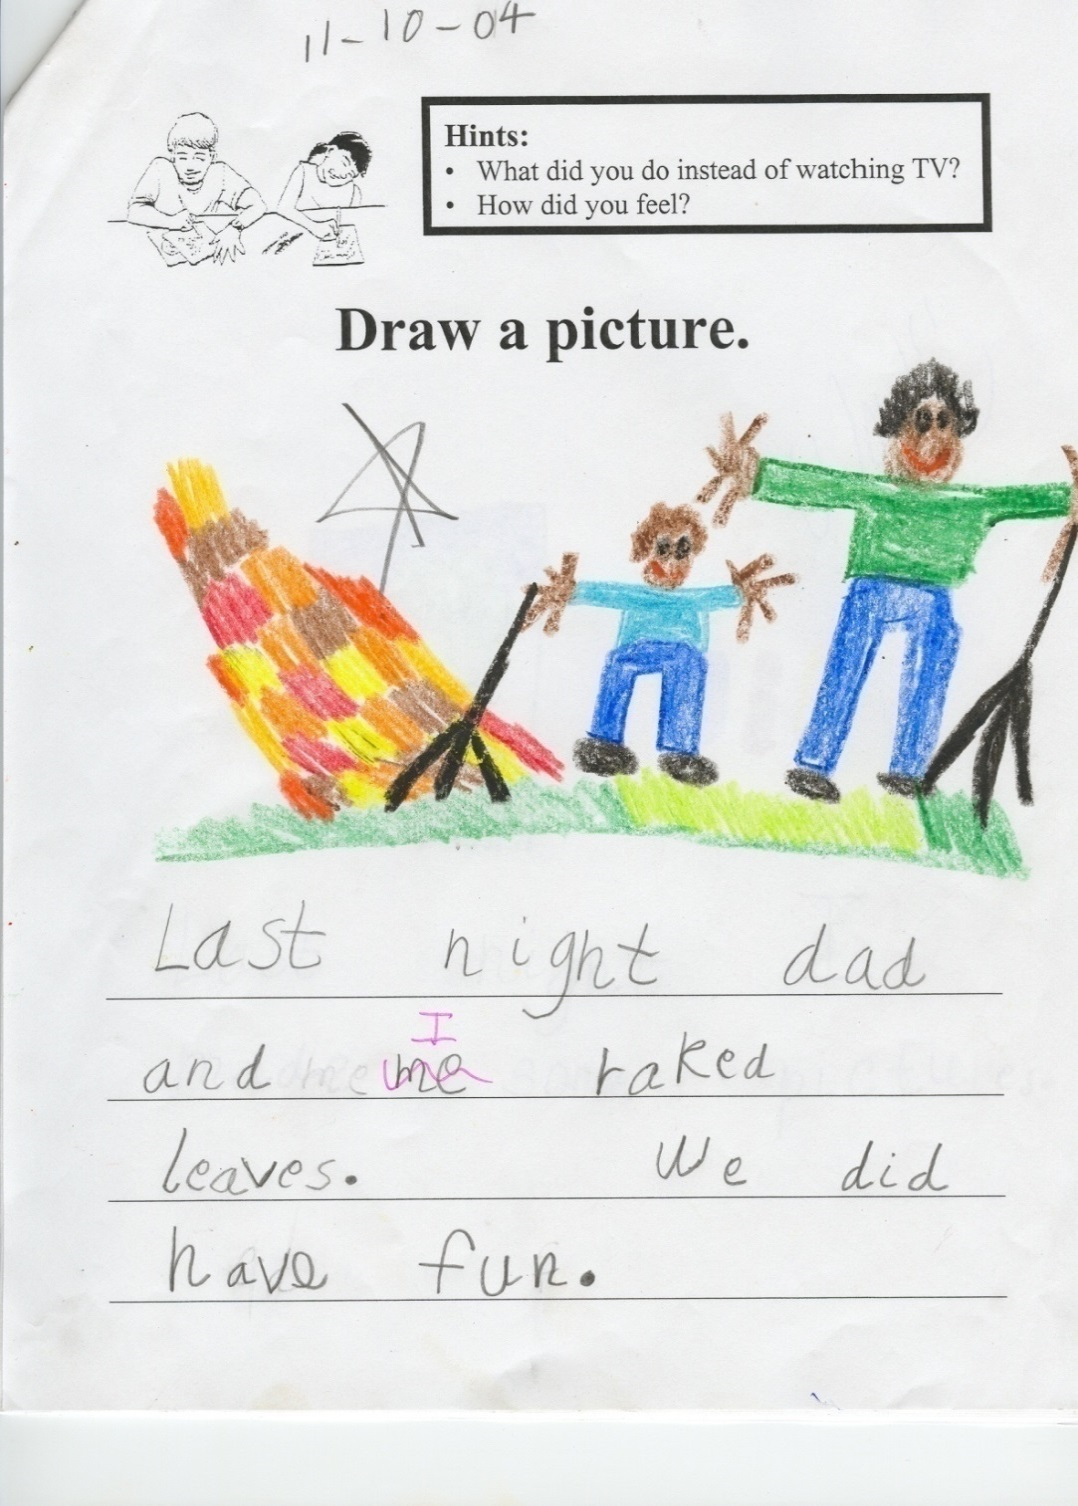 11-10-04
Hints:
• What did you do instead of watching TV?
• How did you feel?
Draw a picture.
Last night dad
I
and me raked
leaves. We did
have fun.